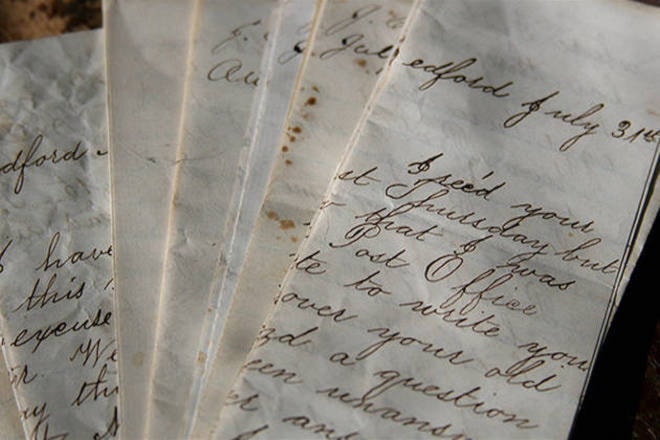 dford
I have
this
excuse
We
Au
J. Jul
edford July 31st
I rec'd your
st Thursday but
that I was
Post Office
te to write you
over your old
a question
een unansw